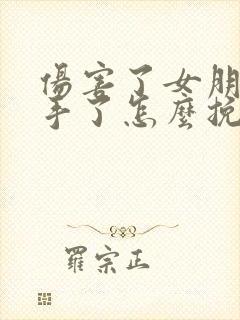 傷害了女朋
手了怎麼挽
羅宗正